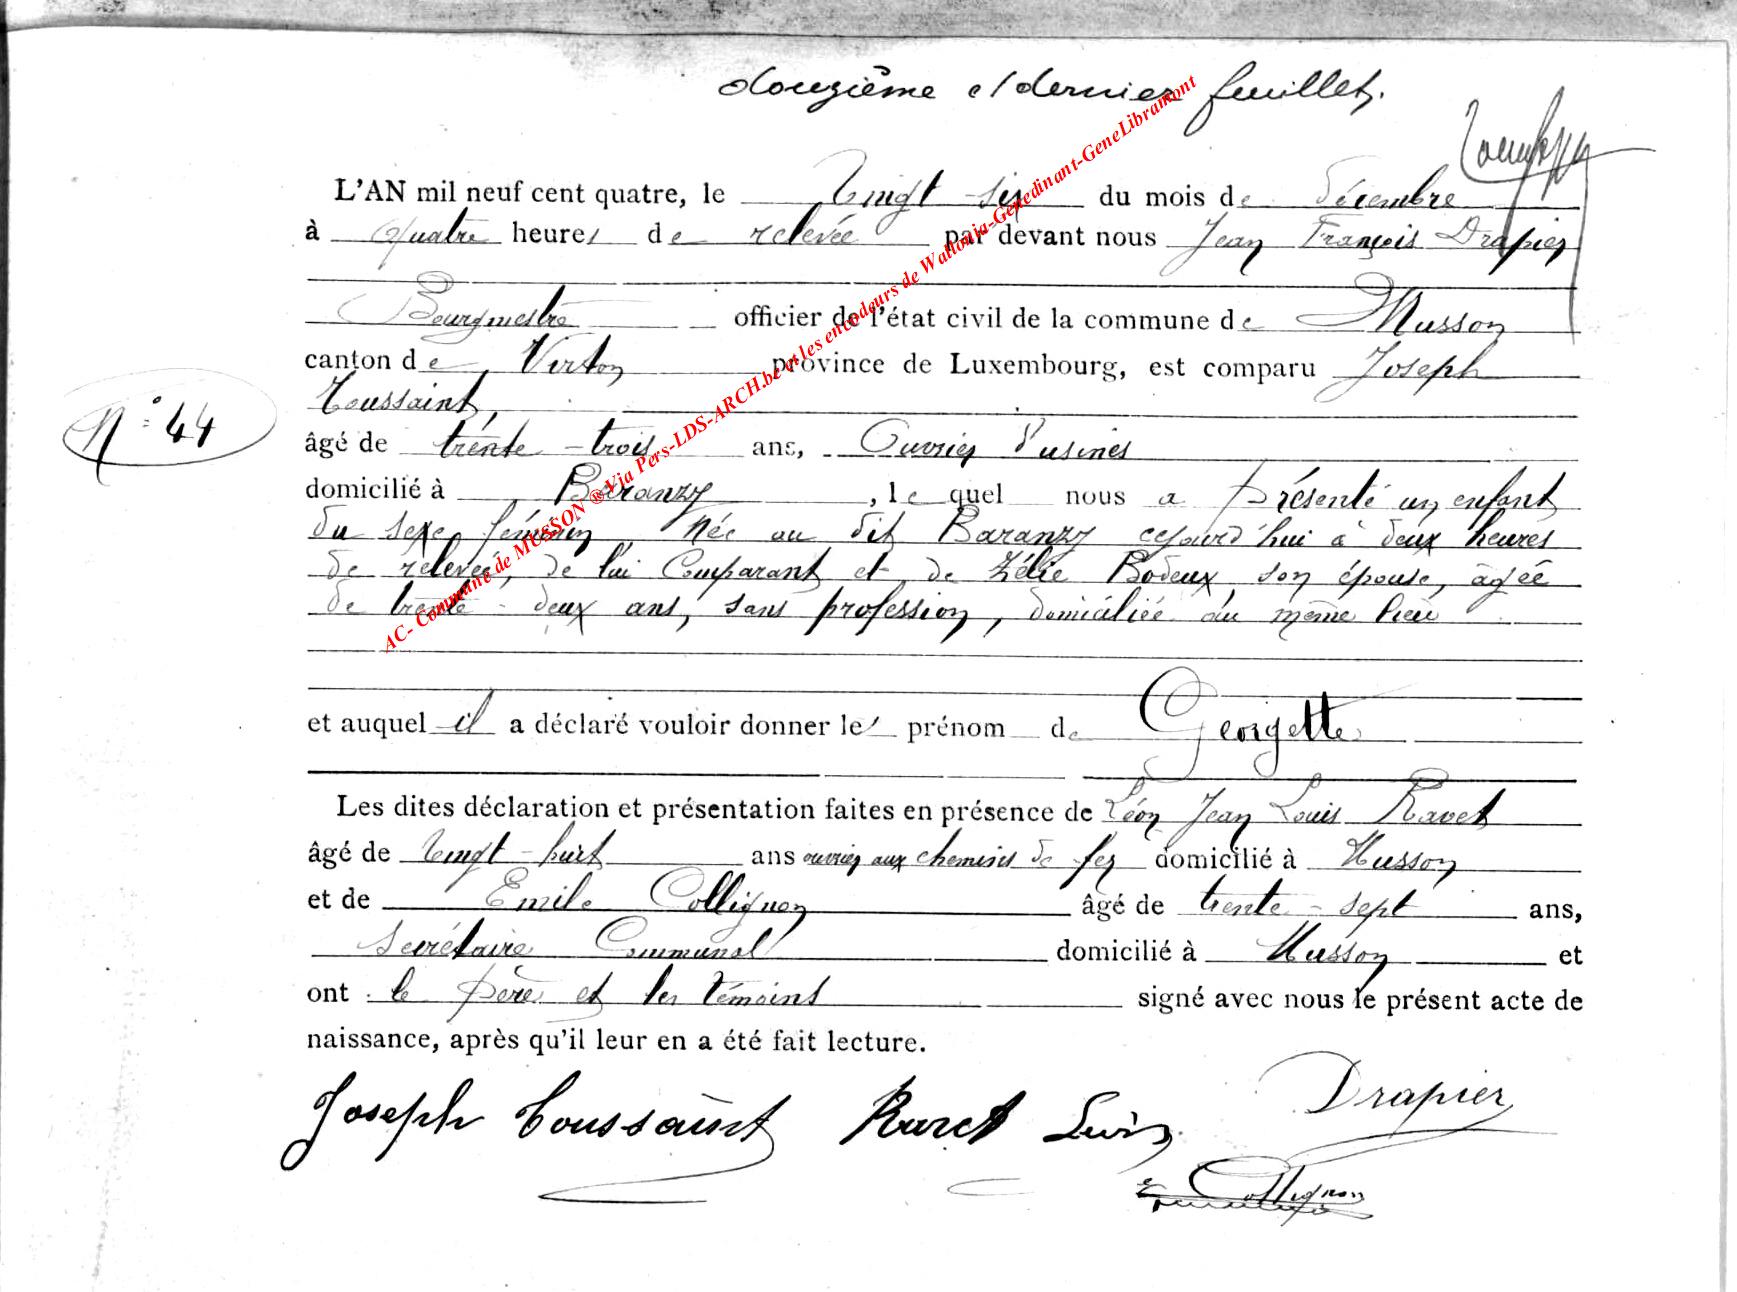 douzième et dernier feuillet.
L'AN mil neuf cent quatre, le vingt-six du mois de décembre
à quatre heures de relevée par devant nous Jean François Drapier
Bourgmestre officier de l'état civil de la commune de Musson
canton de Virton province de Luxembourg, est comparu Joseph
Toussaint,
N° 44
âgé de trente-trois ans, Ouvrier d'usines
domicilié à Baranzy, lequel nous a présenté un enfant
du sexe féminin, née au dit Baranzy cejourd'hui à deux heures
de relevée, de lui Comparant et de Zélie Bodeux, son épouse, âgée
de trente-deux ans, sans profession, domiciliée au même lieu
et auquel il a déclaré vouloir donner le prénom de Georgette
Les dites déclaration et présentation faites en présence de Léon Jean Louis Ravet
âgé de vingt-huit ans ouvrier aux chemins de fer domicilié à Musson
et de Emile Collignon âgé de trente-sept ans,
Secrétaire Communal domicilié à Musson et
ont le père et les témoins signé avec nous le présent acte de
naissance, après qu'il leur en a été fait lecture.
Joseph Toussaint Ravet Louis Drapier
E Collignon
AC- Commune de MUSSON ® Via Pers-LDS-ARCH.be et les encodeurs de Wallonia-Genedinant-GeneLibramont